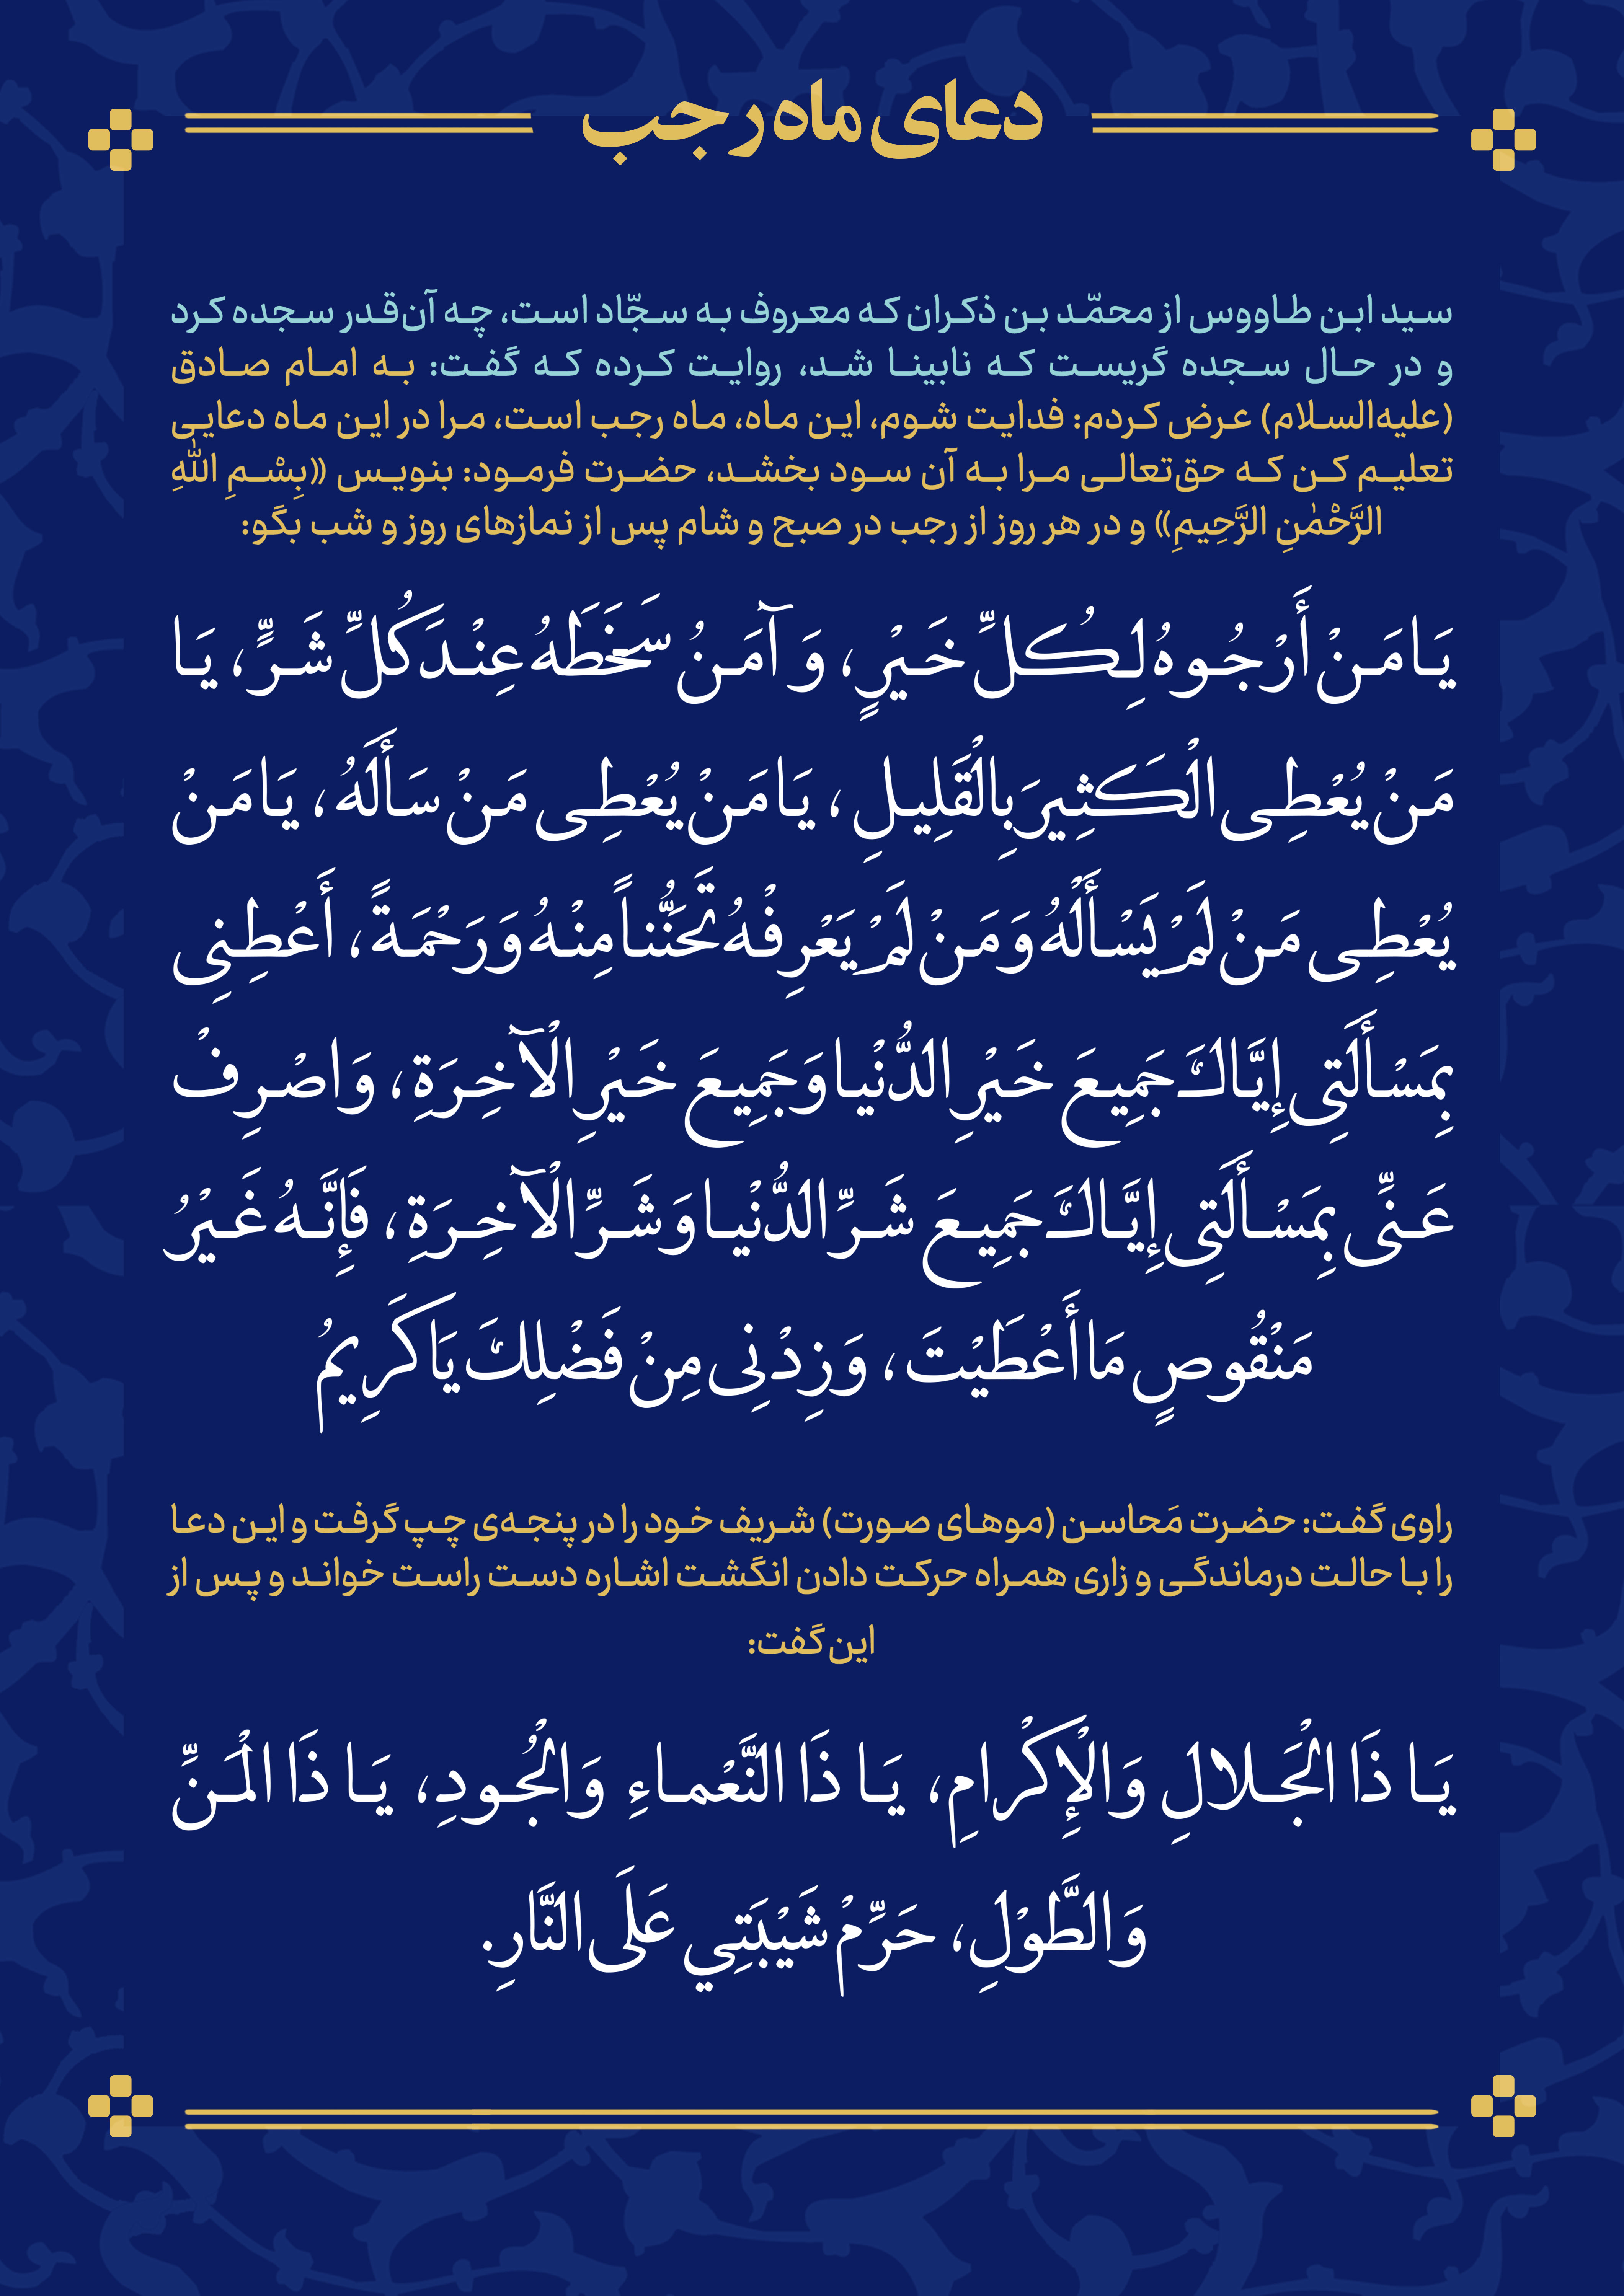 دعای ماه رجب
سید ابن طاووس از محمّد بن ذکران که معروف به سجّاد است، چه آن‌قدر سجده کرد
و در حال سجده گریست که نابینا شد، روایت کرده که گفت: به امام صادق
(علیه‌السلام) عرض کردم: فدایت شوم، این ماه، ماه رجب است، مرا در این ماه دعایی
تعلیم کن که حق‌تعالی مرا به آن سود بخشد، حضرت فرمود: بنویس «بِسْمِ اللّٰهِ
الرَّحْمٰنِ الرَّحِیمِ» و در هر روز از رجب در صبح و شام پس از نمازهای روز و شب بگو:
یَا مَنْ أَرْجُوهُ لِکُلِّ خَیْرٍ، وَ آمَنُ سَخَطَهُ عِنْدَ کُلِّ شَرٍّ، یَا
مَنْ یُعْطِی الْکَثِیرَ بِالْقَلِیلِ، یَا مَنْ یُعْطِی مَنْ سَأَلَهُ، یَا مَنْ
یُعْطِی مَنْ لَمْ یَسْأَلْهُ وَ مَنْ لَمْ یَعْرِفْهُ تَحَنُّناً مِنْهُ وَ رَحْمَةً، أَعْطِنِی
بِمَسْأَلَتِی إِیَّاکَ جَمِیعَ خَیْرِ الدُّنْیا وَ جَمِیعَ خَیْرِ الْآخِرَةِ، وَ اصْرِفْ
عَنِّی بِمَسْأَلَتِی إِیَّاکَ جَمِیعَ شَرِّ الدُّنْیا وَ شَرِّ الْآخِرَةِ، فَإِنَّهُ غَیْرُ
مَنْقُوصٍ مَا أَعْطَیْتَ، وَ زِدْنِی مِنْ فَضْلِکَ یَا کَرِیمُ
راوی گفت: حضرت مَحاسن (موهای صورت) شریف خود را در پنجه‌ی چپ گرفت و این دعا
را با حالت درماندگی و زاری همراه حرکت دادن انگشت اشاره دست راست خواند و پس از
این گفت:
یَا ذَا الْجَلالِ وَ الْإِکْرامِ، یَا ذَا النَّعْماءِ وَ الْجُودِ، یَا ذَا الْمَنِّ
وَ الطَّوْلِ، حَرِّمْ شَیْبَتِي عَلَی النَّارِ.